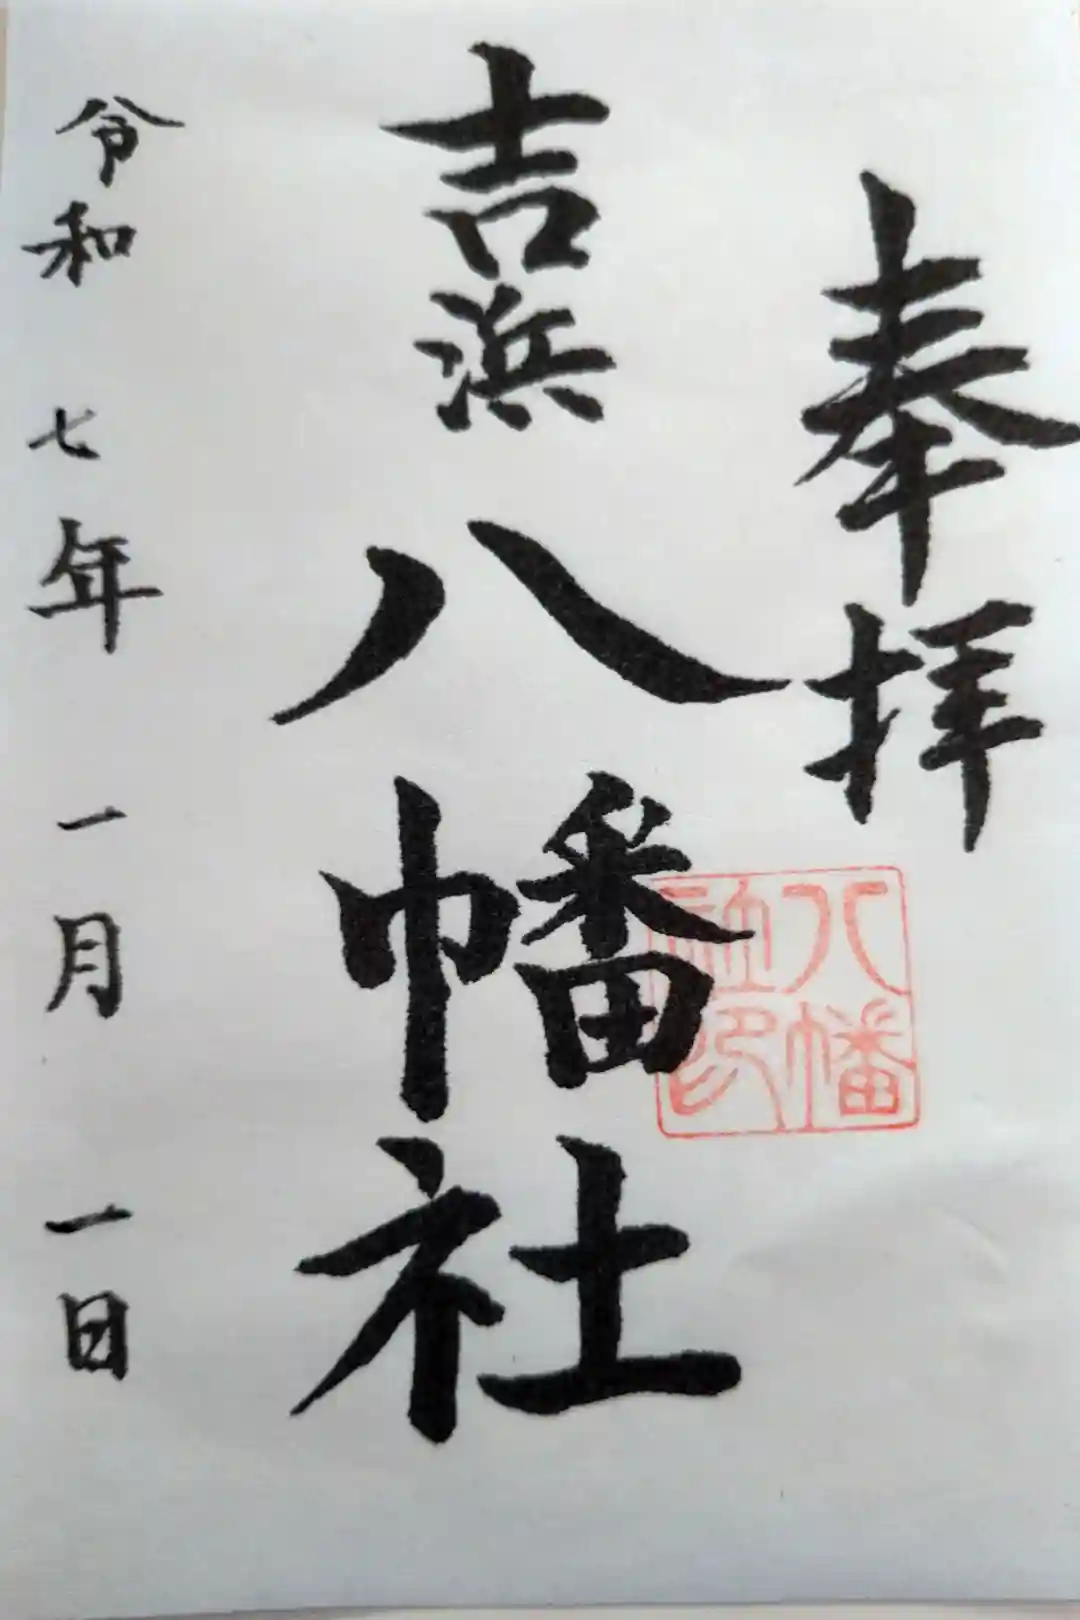 奉拝
吉浜八幡社
八幡
社印
令和七年一月一日